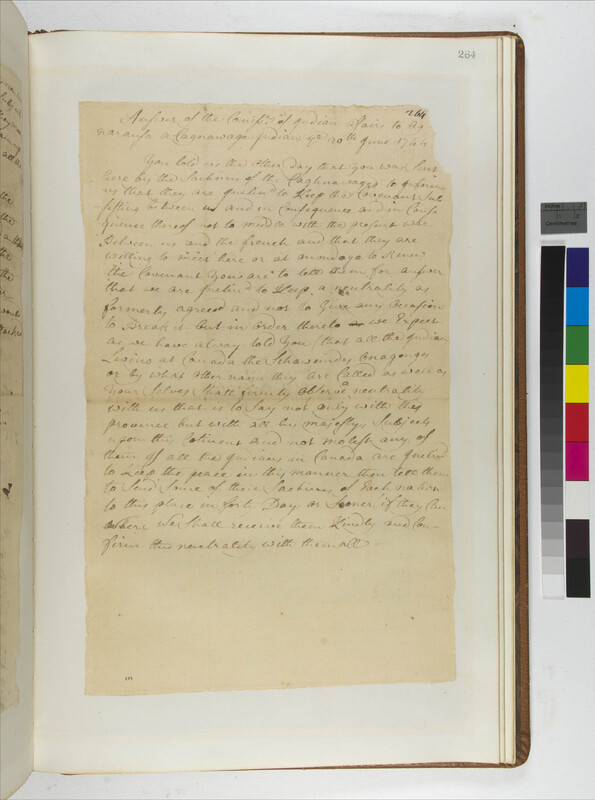 264
264
Answer of the Comis.rs of Indian affairs to Ag
naransa a Cagnawage Indian ye 20th June 1744
You told us the other day that you was sent
here by the Sachims of the Caghnawages to Inform
us that they are Inclind to Keep the Covenant Sub
sisting between us and in Consequence and in Conse
quence thereof not to meddle with the present war
Between us and the french and that they are
willing to meet here or at onondage to Renew
the Covenant You are to tell them for answer
that we are Inclind to Keep a neutrality as
formerly agreed and not to Give any Occasion
to Break it but in order thereto we Expect
as we have alway told You that all the Indian
Living at Canada the Schawendes onagonges
or by what other name they are Called as even as
Your Selves Shall firmly observe a neutrality
with us that is to Say not only with this
province but with all his majestys Subjects
upon this Cotinent and not molest any of
them if all the Indians in Canada are Inclind
to Keep the peace in this manner then tell them
to Send Some of those Sachims of Each nation
to this place in forty Days or Sooner if they Can
where we Shall receive them Kindly and Con-
firm this neutrality with them all